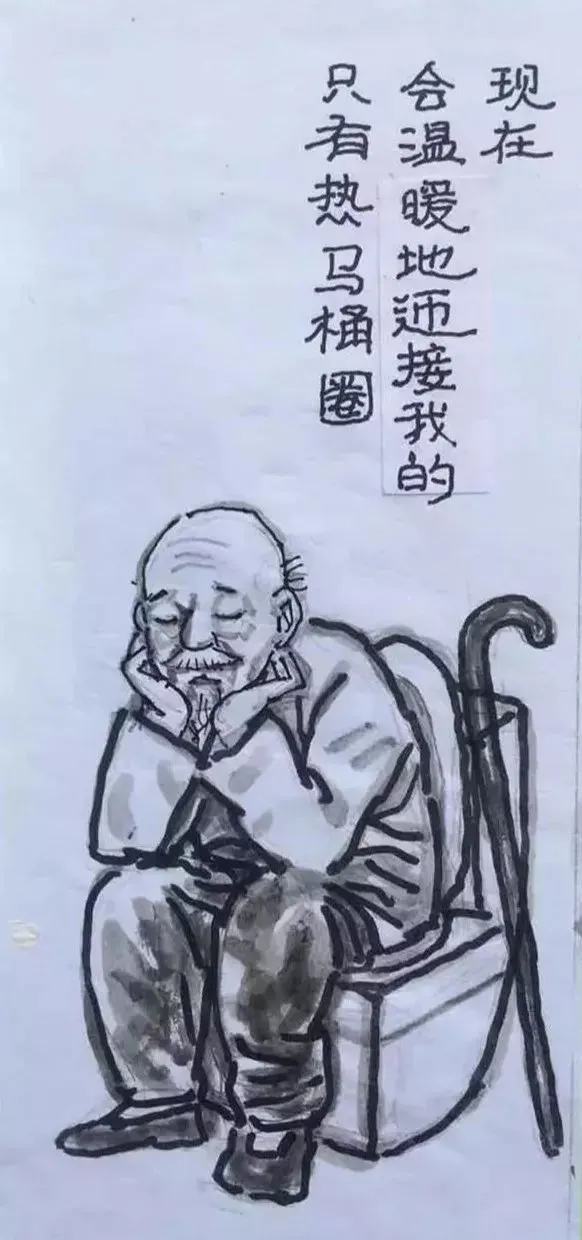 现在
会温暖地迎接我的
只有热马桶圈